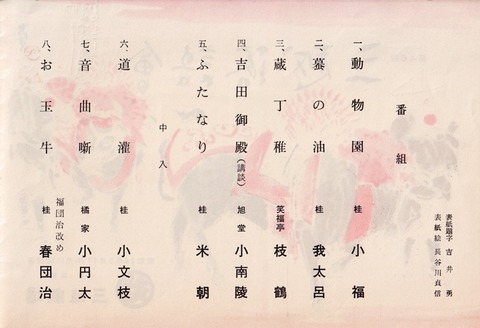 表紙題字 吉井勇
表紙絵 長谷川貞信
番組
一、動物園 桂 小福
二、蟇の油 桂 我太呂
三、蔵丁稚 笑福亭 枝鶴
四、吉田御殿(講談) 旭堂 小南陵
五、ふたなり 桂 米朝
中入
六、道灌 桂 小文枝
七、音曲噺 橘家 小円太
八、お玉牛 福団治改め 桂 春団治